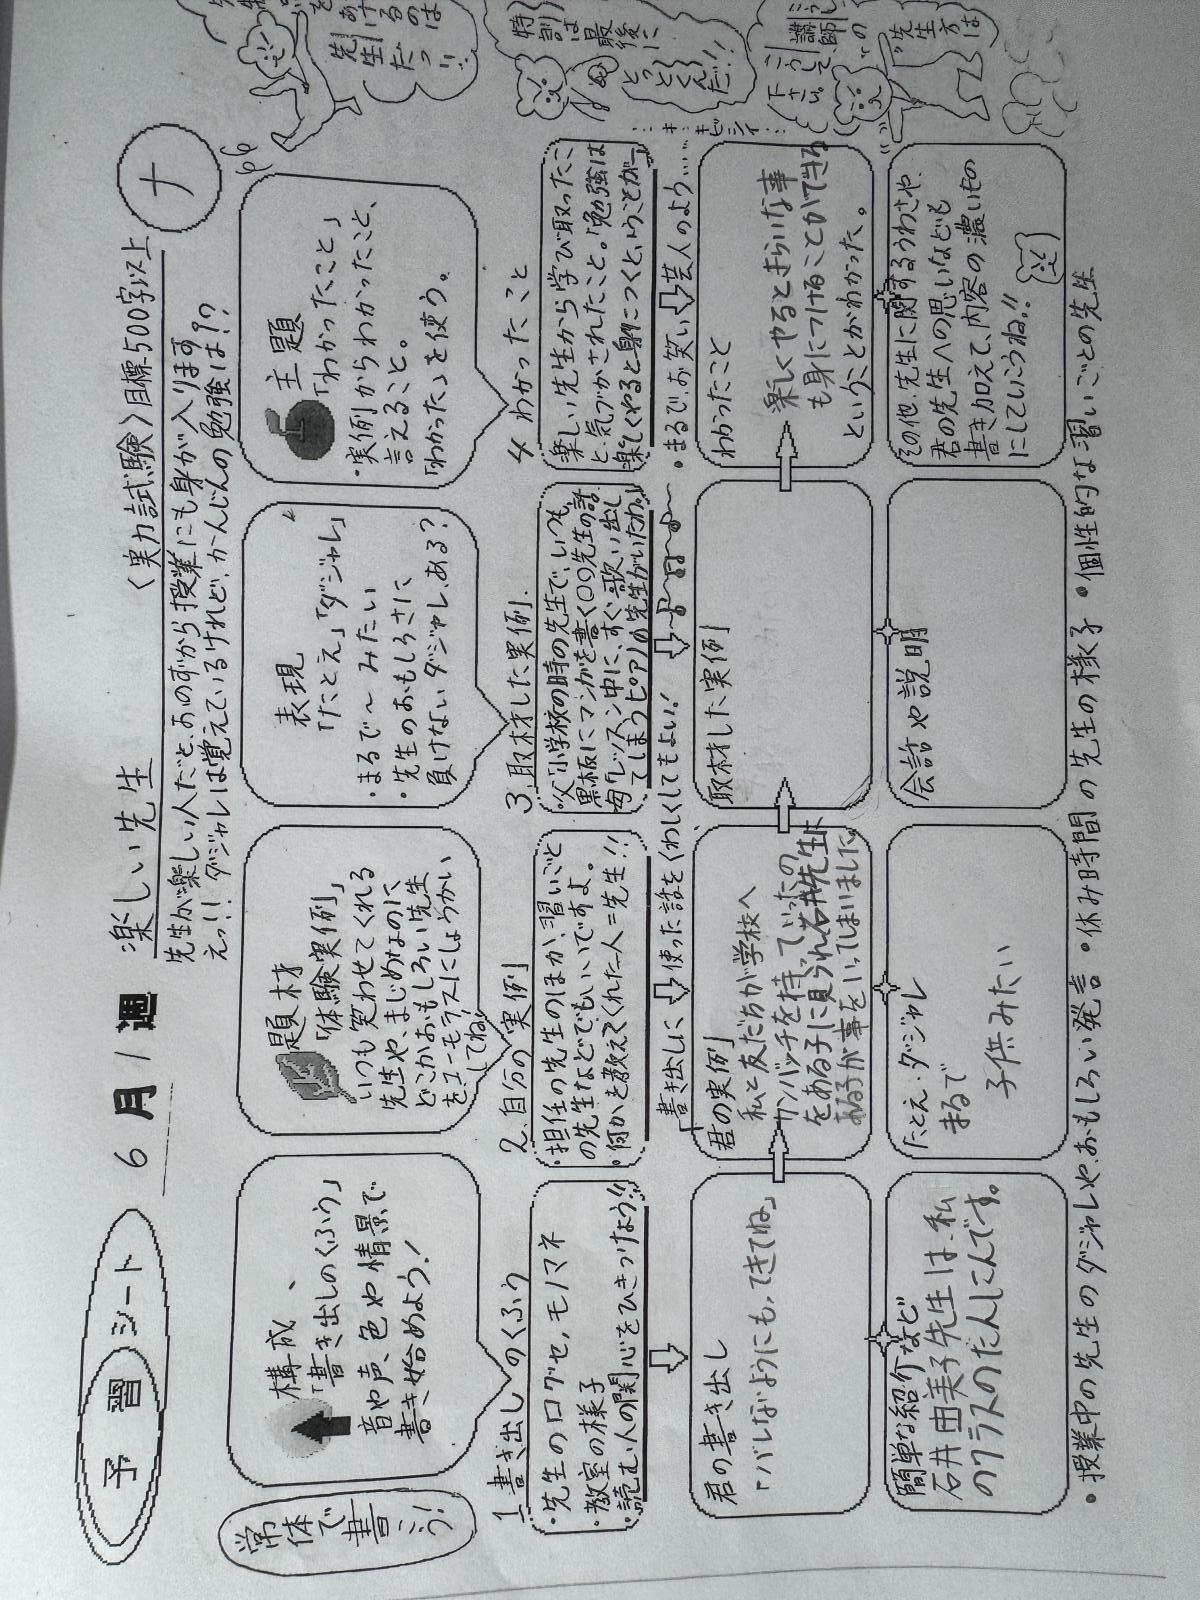 予習シート
6月1週
楽しい先生
〈実力試験〉目標500字以上
ナ
先生が楽しい人だと、おのずから授業にも身が入ります
えっ!! ダジャレは覚えているけれど、かんじんの勉強は!?
常体で書こう!
構成、
「書き出しのくふう」
音や声、色や情景で
書き始めよう!
題材
「体験実例」
いつも笑わせてくれる
先生や、まじめなのに、
どこかおもしろい先生
をユーモラスにしょうかい
してね!
表現
「たとえ」「ダジャレ」
・まるで〜みたい
・先生のおもしろさに
負けないダジャレ、ある?
主題
「わかったこと」
・実例からわかったこと、
言えること。
「わかった」を使う。
1 書き出しのくふう
・先生の口グセ、モノマネ
・教室の様子
・読む人の関心をひきつけよう!!
2. 自分の実例
・担任の先生のほか、習いごと
の先生などでもいいですよ。
・何かを教えてくれた人=先生!!
3. 取材した実例
父「小学校の時の先生で、いつも、
黒板にマンガを書く〇〇先生の話
母「レッスン中に、すぐ歌い出し
てしまうピアノの先生がいたわ。」
4 わかったこと
楽しい先生から学び取ったこ
と、気づかされたこと。「勉強は
楽しくやると身につくということが…」
書き出しに使った話をくわしくしてもよい!
・まるで、お笑い芸人のよう…
君の書き出し
「バレないようにもってきてね」
君の実例
私と友だちが学校へ
カンバッチを持っていったの
をある子に見られ石井先生に
ある子が事をいってしまいました。
取材した実例
わかったこと
楽しくやるときらいな事
も身につけることができる
ということがわかった。
簡単な紹介など
石井由美子先生は、私
のクラスのたんにんです。
たとえ・ダジャレ
まるで
子供みたい
会話や説明
その他、先生に関するうわさや、
君の先生への思いなども
書き加えて、内容の濃いもの
にしていこうね!!
・授業中の先生のダジャレや、おもしろい発言 ・休み時間の先生の様子 ・個性的な習いごとの先生
あげるのは
先生だっ!!
特訓は最後に
とっとくんだ!!
講師の
先生方は
こうして
下さい。